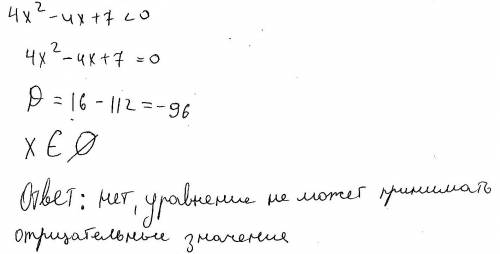 4x² - 4x + 7 < 0
4x² - 4x + 7 = 0
D = 16 - 112 = -96
x ∈ ∅
Ответ: нет, уравнение не может принимать
отрицательные значение